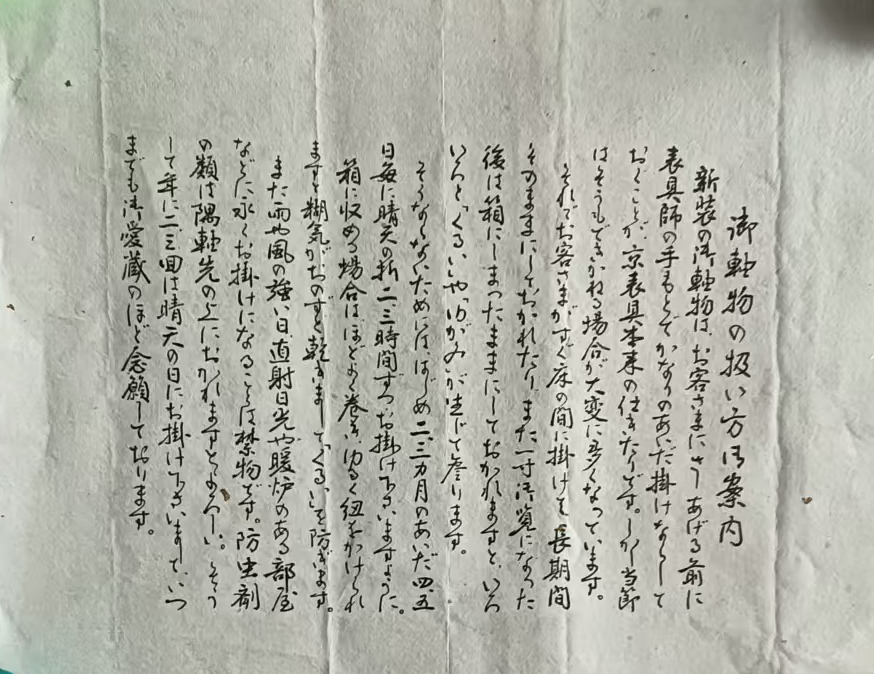 御軸物の扱い方御案内
新装の御軸物は、お客さまにさしあげる前に
表具師の手もとでかなりのあいだ掛けならして
おくことが、京表具本来の仕きたりです。しかし当節
はそうもできかねる場合が大変に多くなっています。
それでお客さまがすぐ床の間に掛けて、長期間
そのままにしておかれたり、また一寸御覧になった
後は箱にしまったままにしておかれますと、いろ
いろと「くるい」や「ゆがみ」が生じて参ります。
そうならないためには、はじめ二、三カ月のあいだ四、五
日毎に晴天の折二、三時間ずつお掛け下さいますように。
箱に収める場合はほどよく巻き、ゆるく紐をかけられ
ますと糊気がおのずと乾きまして「くるい」を防ぎます。
また雨や風の強い日、直射日光や暖炉のある部屋
などに永くお掛けになることは禁物です。防虫剤
の類は隅軸先の上におかれますとよろしい。そう
して年に二、三回は晴天の日にお掛け下さいまして、いつ
までも御愛蔵のほど念願しております。